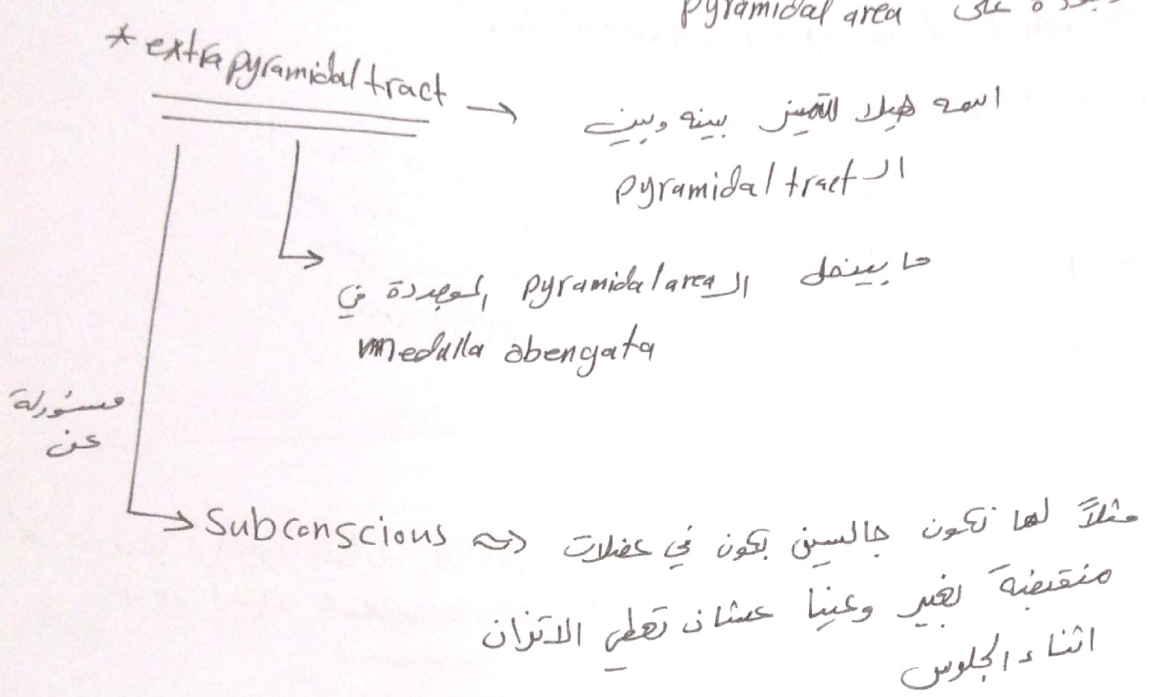 على pyramidal area
* extrapyramidal tract → اسمه هيك للتمييز بينه وبين
الـ pyramidal tract
ما بيدخل الـ pyramidal area الموجودة في
medulla abengata
مسئولة
عن
Subconscious ⇝ مثلاً لما نكون جالسين بكون في عضلات
منقبضة بغير وعينا عشان تعطي الاتزان
اثناء الجلوس